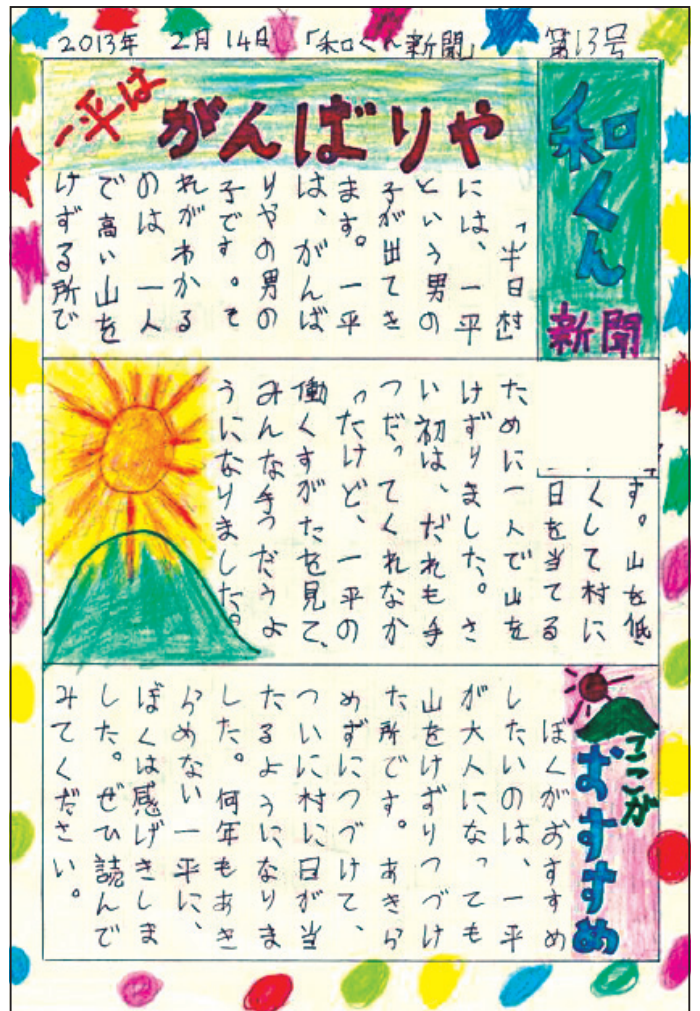 2013年 2月14日 「和くん新聞」 第13号
和くん
新聞
一平は
がんばりや
「半日村」
には、一平
という男の
子が出てき
ます。一平
は、がんば
りやの男の
子です。そ
れがわかる
のは 一人
で高い山を
けずる所で
す。山を低
くして村に
日を当てる
ために一人で山を
けずりました。さ
い初は、だれも手
つだってくれなか
ったけど、一平の
働くすがたを見て、
みんな手つだうよ
うになりました。
ここが
おすすめ
ぼくがおすすめ
したいのは、一平
が大人になっても
山をけずりつづけ
た所です。あきら
めずにつづけて、
ついに村に日が当
たるようになりま
した。何年もあき
らめない一平に、
ぼくは感げきしま
した。ぜひ読んで
みてください。